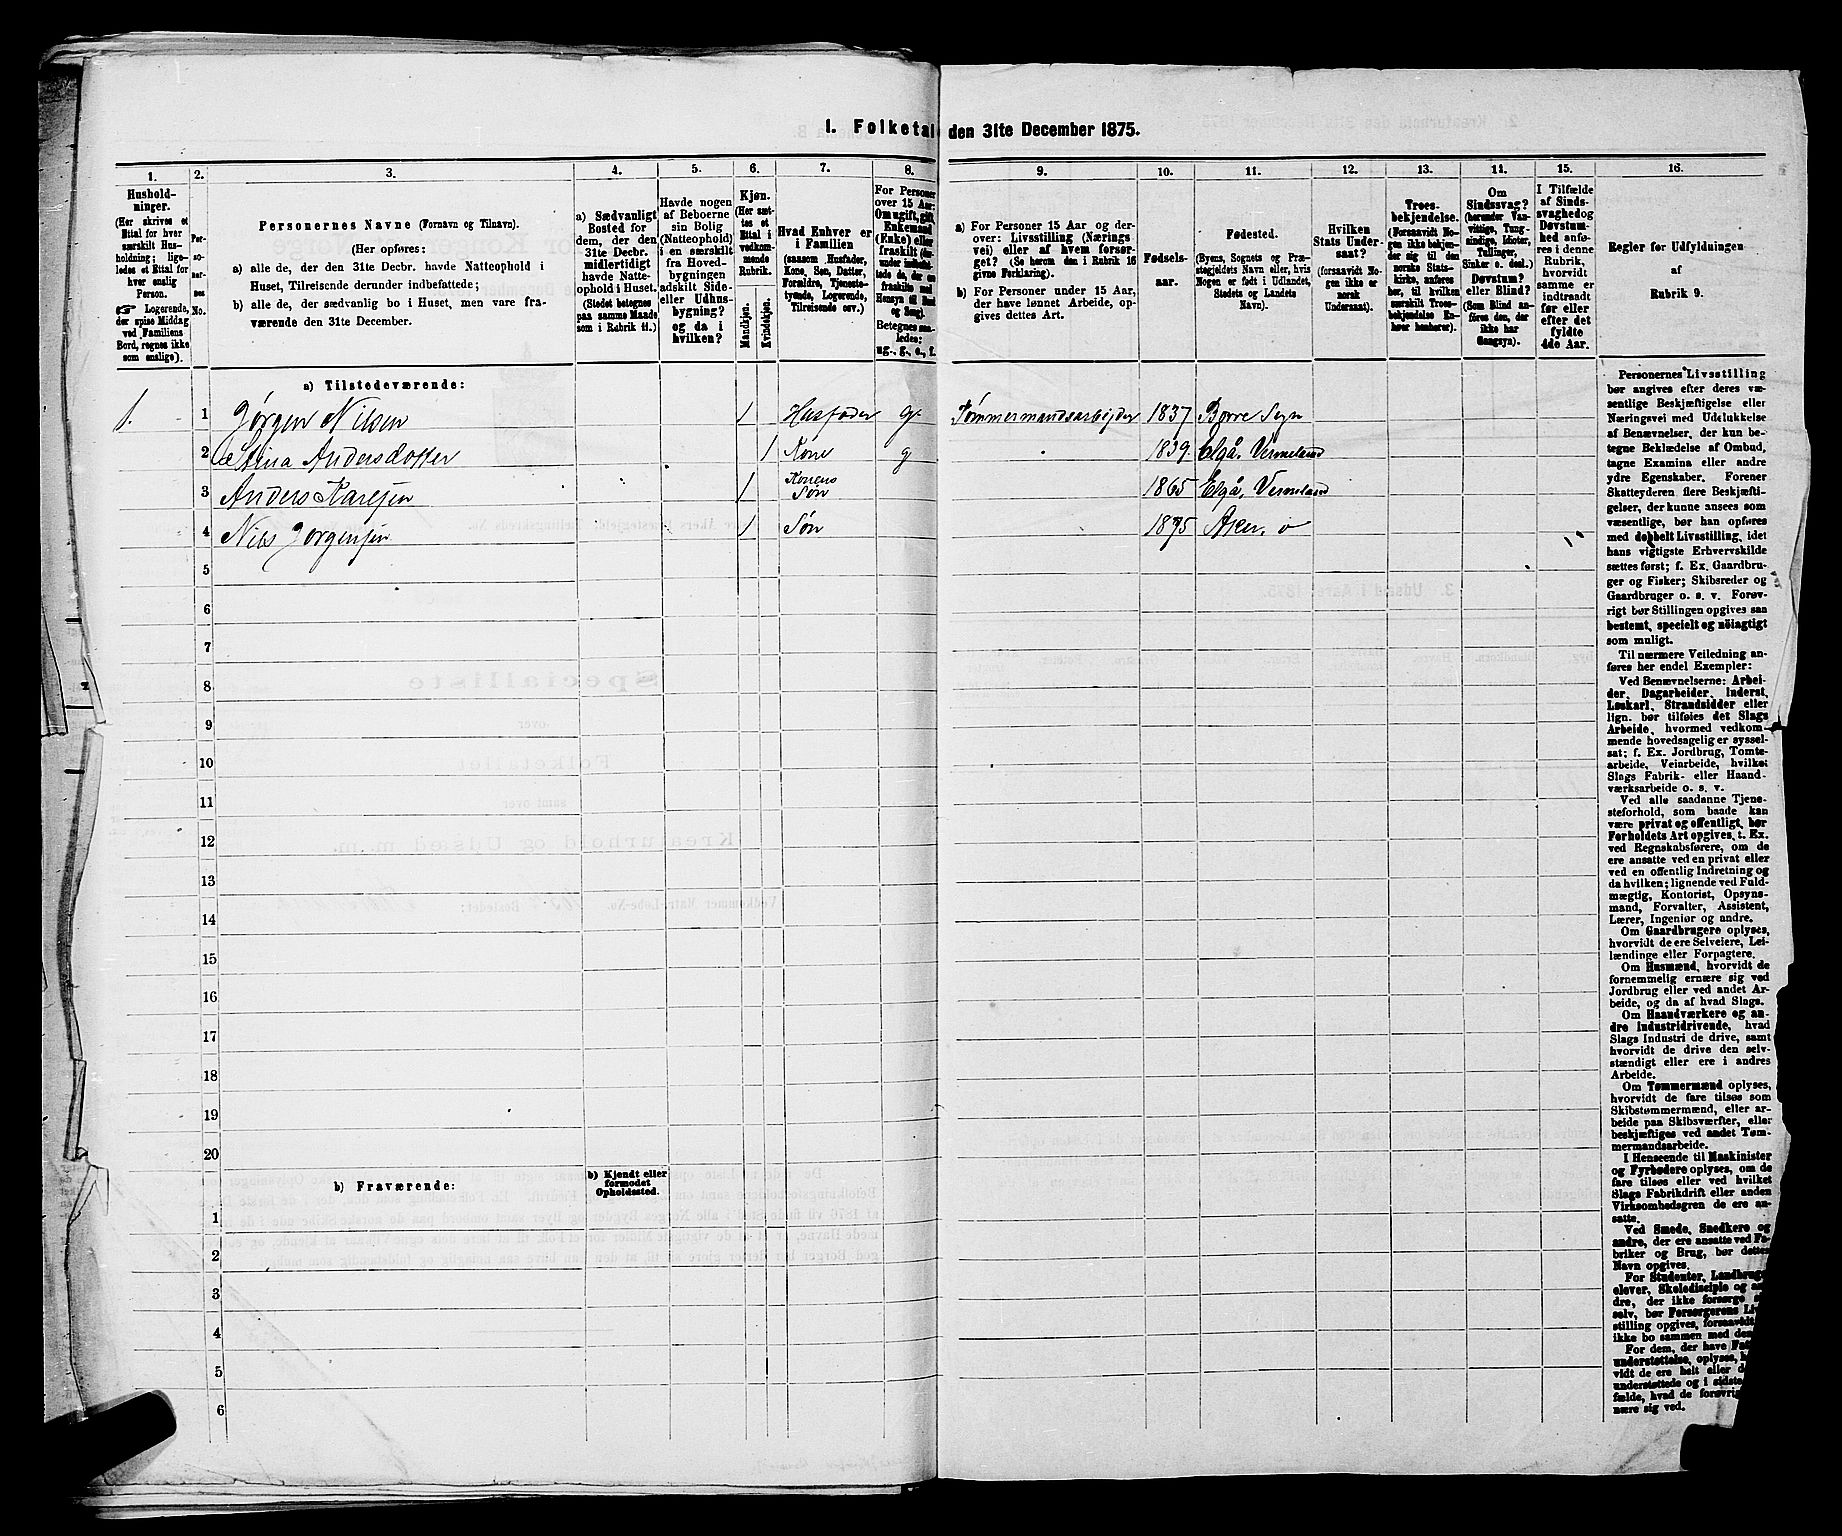 1. Folketal den 31te December 1875.
1.
Hushold-
ninger.
(Her skrives et
Ettal for hver
særskilt Hus-
holdning; lige-
ledes et Ettal for
hver enslig
Person.
Logerende,
der spise Middag
ved Familiens
Bord, regnes ikke
som enslige).
2.
Per-
so-
ner-
nes
No.
3.
Personernes Navne (Fornavn og Tilnavn).
(Her opføres:
a) alle de, der den 31te Decbr. havde Natteophold i
Huset, Tilreisende derunder indbefattede;
b) alle de, der sædvanlig bo i Huset, men vare fra-
værende den 31te December.
4.
a) Sædvanligt
Bosted for
dem, der den
31te Decbr.
midlertidigt
havde Natte-
ophold i Huset.
(Stedet betegnes
paa samme Maade
som i Rubrik 11.)
5.
Havde nogen
af Beboerne
sin Bolig
(Natteophold)
i en særskilt
fra Hoved-
bygningen
adskilt Side-
eller Udhus-
bygning?
og da i
hvilken?
6.
Kjøn.
(Her sæt-
tes et
Ettal i
vedkom-
mende
Rubrik.
Mandkjøn.
Kvindekjøn.
7.
Hvad Enhver er
i Familien
(saasom Husfader,
Kone, Søn, Datter,
Forældre, Tjeneste-
tyende, Logerende,
Tilreisende osv.)
8.
For Personer
over 15 Aar:
Om ugift, gift,
Enkemand
(Enke) eller
fraskilt
Betegnes saa-
ledes:
ug., g., e., f.
9.
a) For Personer 15 Aar og der-
over: Livsstilling (Nærings
vei) eller af hvem forsør-
get? (Se herom den i Rubrik 16
givne Forklaring).
b) For Personer under 15 Aar,
der have lønnet Arbeide, op-
gives dettes Art.
10.
Fødsels-
aar.
11.
Fødested.
(Byens, Sognets og Præ-
stegjeldets Navn eller, hvis
Nogen er født i Udlandet,
Stedets og Landets
Navn).
12.
Hvilken
Stats Under-
saat?
(forsaavidt No-
gen ikke er
norsk
Undersaat).
13.
Troes-
bekjendelse.
(Forsaavidt No-
gen ikke bekjen-
der sig til den
norske Stats-
kirke, anføres
her, til hvilken
særskilt Troes-
bekjendelse En-
hver henhører).
14.
Om
Sindssvag?
(herunder Van-
vittige, Tung-
sindige, Idioter,
Tullinger,
Sinker o. desl.)
Døvstum?
eller Blind?
(Som Blind an-
føres den, der
ikke har
Gangsyn).
15.
I Tilfælde
af Sinds-
svaghed og
Døvstum-
hed anfø-
res i denne
Rubrik,
hvorvidt
samme er
indtraadt
før eller
efter det
fyldte
4de Aar.
16.
Regler for Udfyldningen
af
Rubrik 9.
a) Tilstedeværende:
1. 1 Jørgen Nilsen 1 Husfader g Tømmermandsarbejder 1837 Borre Sogn
2 Stina Andersdotter 1 Kone g 1839 Elgå, Vermeland
3 Anders Karlsen 1 Konens Søn 1865 Elgå, Vermeland
4 Nils Jørgensen 1 Søn 1875 Aker
5
6
7
8
9
10
11
12
13
14
15
16
17
18
19
20
b) Fraværende:
b) Kjendt eller
formodet
Opholdssted.
1
2
3
4
5
6
Personernes Livsstilling
bør angives efter deres væ-
sentlige Beskjæftigelse eller
Næringsvei med Udelukkelse
af Benævnelser, der kun be-
tegne Beklædelse af Ombud,
tagne Examina eller andre
ydre Egenskaber. Forener
Skatteyderen flere Beskjæfti-
gelser, der kunne ansees som
væsentlige, bør han opføres
med dobbelt Livsstilling, idet
hans vigtigste Erhvervskilde
sættes først; f. Ex. Gaardbru-
ger og Fisker; Skibsreder og
Gaardbruger o. s. v. Forøv-
rigt bør Stillingen opgives saa
bestemt, specielt og nöiagtigt
som muligt.
Til nærmere Veiledning an-
føres her endel Exempler:
Ved Benævnelserne: Arbei-
der, Dagarbeider, Inderst,
Løskarl, Strandsidder eller
lign. bør tilføies det Slags
Arbeide, hvormed vedkom-
mende hovedsagelig er syssel-
sat; f. Ex. Jordbrug, Tomte-
arbeide, Veiarbeide, hvilket
Slags Fabrik- eller Haand-
værksarbeide o. s. v.
Ved alle saadanne Tjene-
steforhold, som baade kan
være privat og offentligt, bør
Forholdets Art opgives, t. Ex.
ved Regnskabsførere, om de
ere ansatte ved en privat eller
ved en offentlig Indretning og
da hvilken; lignende ved Fuld-
mægtig, Kontorist, Opsyns-
mand, Forvalter, Assistent,
Lærer, Ingeniør og andre.
Om Gaardbrugere oplyses,
hvorvidt de ere Selveiere, Lei-
lændinge eller Forpagtere.
Om Husmænd, hvorvidt de
fornemmelig ernære sig ved
Jordbrug eller ved andet Ar-
beide, og da af hvad Slags.
Om Haandværkere og an-
dre Industridrivende, hvad
Slags Industri de drive, samt
hvorvidt de drive den selv-
stændigt eller ere i andres
Arbeide.
Om Tømmermænd oplyses,
hvorvidt de fare tilsøs som
Skibstømmermænd, eller ar-
beide paa Skibsværfter, eller
beskjæftiges ved andet Tøm-
mermandsarbeide.
I Henseende til Maskinister
og Fyrbødere oplyses, om de
fare tilsøs eller ved hvilket
Slags Fabrikdrift eller anden
Virksomhedsgren de ere an-
satte.
Ved Smede, Snedkere og
andre, der ere ansatte ved Fa-
briker og Brug, bør dettes
Navn opgives.
For Studenter, Landbrugs
elever, Skoledisciple og an
dre, der ikke forsørge
selv, bør Forsørgerens Liv
stilling opgives, forsaavidt
ikke bo sammen med
For dem, der have
understøttelse, oplyses,
vidt de ere helt eller
understøttede og i sidste
fælde, hvad de forøvrig
nære sig ved.